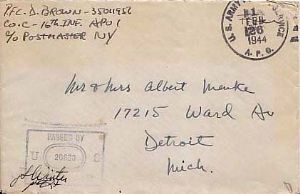 PFC. D. BROWN - 35041951
CO. C - 16TH INF. APO 1
c/o POSTMASTER NY
U.S. ARMY
FEB
26
1944
A. P. O.
Mr & Mrs Albert Menke
17215 Ward Av
Detroit
Mich.
PASSED BY
U S